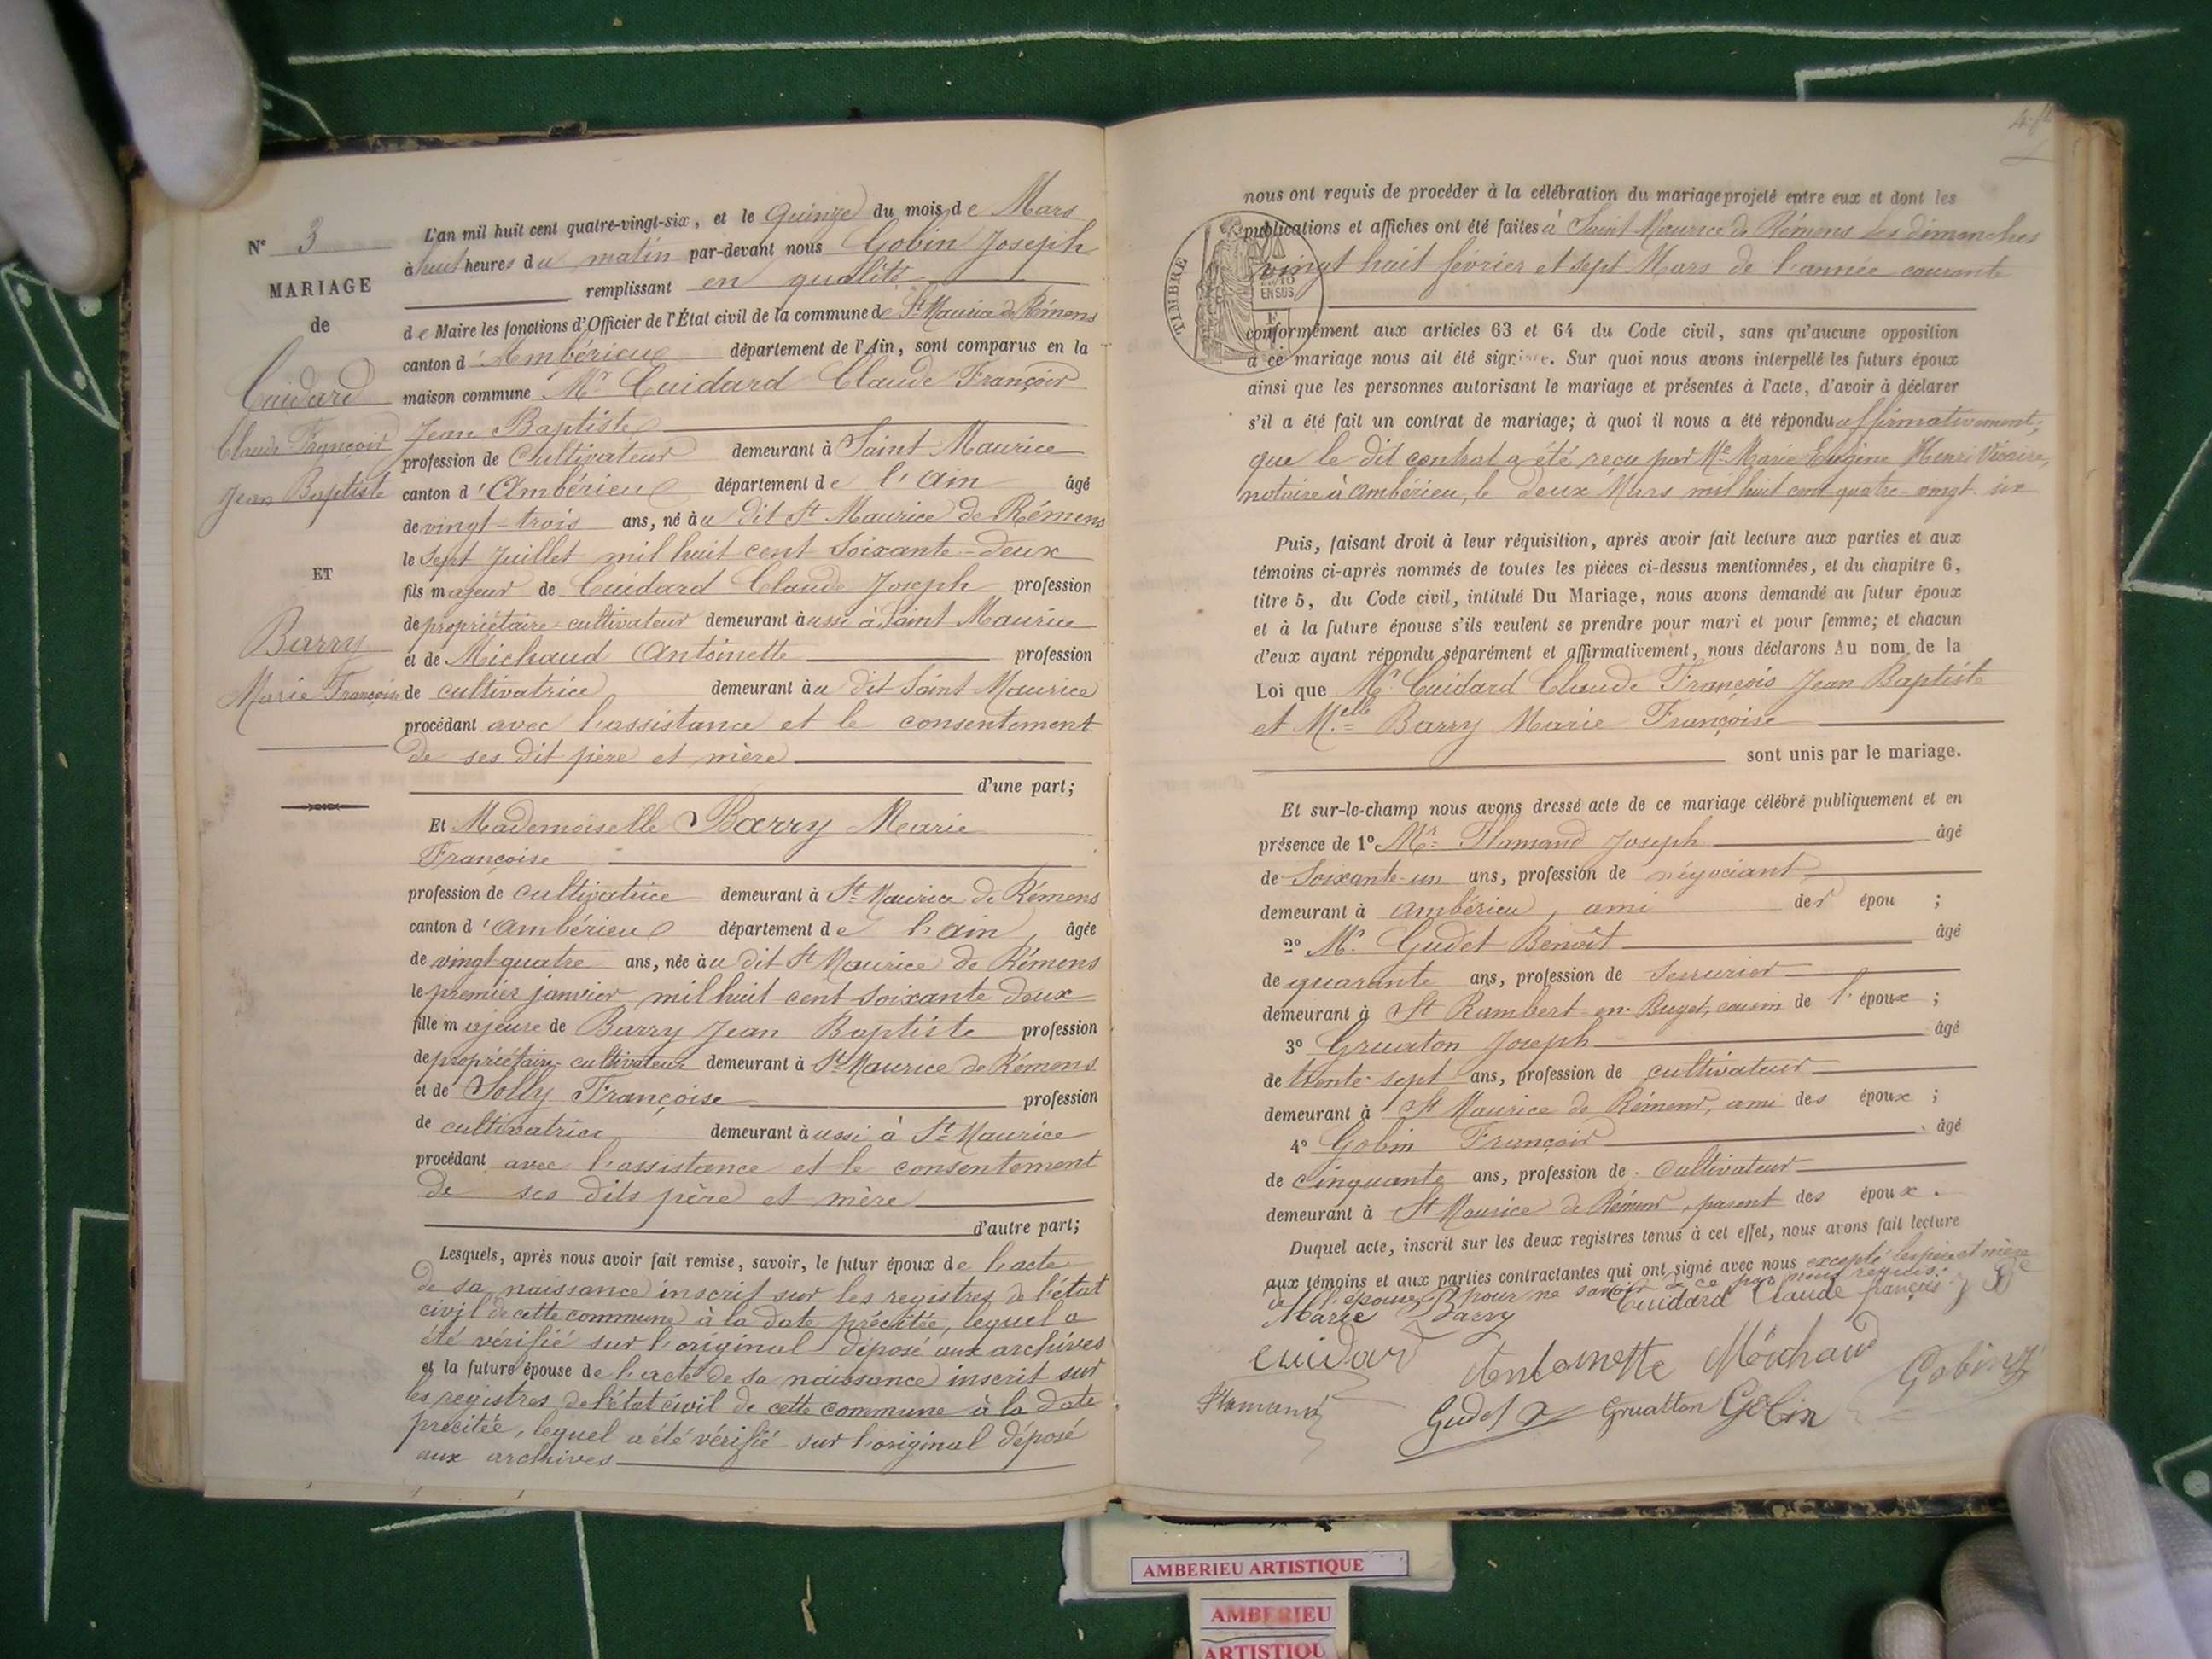 N° 3
MARIAGE
de
Cuidard
Claude François
Jean Baptiste
ET
Barry
Marie Françoise
L'an mil huit cent quatre-vingt-six, et le Quinze du mois de Mars
à huit heures du matin par-devant nous Gobin Joseph
remplissant en qualité
de Maire les fonctions d'Officier de l'État civil de la commune de St Maurice de Rémens
canton d'Ambérieu département de l'Ain, sont comparus en la
maison commune Mr Cuidard Claude François
Jean Baptiste
profession de Cultivateur demeurant à Saint Maurice
canton d'Ambérieu département de l'Ain âgé
de vingt-trois ans, né au dit St Maurice de Rémens
le sept Juillet mil huit cent soixante-deux
fils majeur de Cuidard Claude Joseph profession
de propriétaire-cultivateur demeurant aussi à Saint Maurice
et de Michaud Antoinette profession
de cultivatrice demeurant au dit Saint Maurice
procédant avec l'assistance et le consentement
de ses dit père et mère
d'une part;
Et Mademoiselle Barry Marie
Françoise
profession de cultivatrice demeurant à St Maurice de Rémens
canton d'Ambérieu département de l'ain, âgée
de vingt quatre ans, née au dit St Maurice de Rémens
le premier janvier mil huit cent soixante deux
fille majeure de Barry Jean Baptiste profession
de propriétaire-cultivateur demeurant à St Maurice de Rémens
et de Solly Françoise profession
de cultivatrice demeurant aussi à St Maurice
procédant avec l'assistance et le consentement
de ses dits père et mère
d'autre part;
Lesquels, après nous avoir fait remise, savoir, le futur époux de l'acte
de sa naissance inscrit sur les registres de l'état
civil de cette commune à la date précitée, lequel a
été vérifié sur l'original déposé aux archives
et la future épouse de l'acte de sa naissance inscrit sur
les registres de l'état civil de cette commune à la date
précitée, lequel a été vérifié sur l'original déposé
aux archives
nous ont requis de procéder à la célébration du mariage projeté entre eux et dont les
publications et affiches ont été faites à Saint Maurice de Rémens les dimanches
vingt huit février et sept Mars de l'année courante
TIMBRE
EN SUS
conformément aux articles 63 et 64 du Code civil, sans qu'aucune opposition
à ce mariage nous ait été signifiée. Sur quoi nous avons interpellé les futurs époux
ainsi que les personnes autorisant le mariage et présentes à l'acte, d'avoir à déclarer
s'il a été fait un contrat de mariage; à quoi il nous a été répondu affirmativement,
que le dit contrat a été reçu par Me Marie Eugène Henri Vicaire,
notaire à Ambérieu, le deux Mars mil huit cent quatre-vingt six
Puis, faisant droit à leur réquisition, après avoir fait lecture aux parties et aux
témoins ci-après nommés de toutes les pièces ci-dessus mentionnées, et du chapitre 6,
titre 5, du Code civil, intitulé Du Mariage, nous avons demandé au futur époux
et à la future épouse s'ils veulent se prendre pour mari et pour femme; et chacun
d'eux ayant répondu séparément et affirmativement, nous déclarons Au nom de la
Loi que Mr Cuidard Claude François Jean Baptiste
et Melle Barry Marie Françoise
sont unis par le mariage.
Et sur-le-champ nous avons dressé acte de ce mariage célébré publiquement et en
présence de 1° Mr Flamand Joseph âgé
de soixante-un ans, profession de négociant
demeurant à Ambérieu, ami des épou ;
2° Mr Gudet Benoît âgé
de quarante ans, profession de serrurier
demeurant à St Rambert-en-Bugey, cousin de l'époux ;
3° Gruaton Joseph âgé
de trente-sept ans, profession de cultivateur
demeurant à St Maurice de Rémens, ami des époux ;
4° Gobin François âgé
de cinquante ans, profession de cultivateur
demeurant à St Maurice de Rémens, parent des époux.
Duquel acte, inscrit sur les deux registres tenus à cet effet, nous avons fait lecture
aux témoins et aux parties contractantes qui ont signé avec nous excepté les père et mère
de l'épouse pour ne savoir de ce par nous requis.
Marie Barry Cuidard Claude françois
Cuidard Antoinette Michaud Gobin
Flamand Gudet Gruatton Gobin
AMBERIEU ARTISTIQUE
AMBERIEU
ARTISTIQU